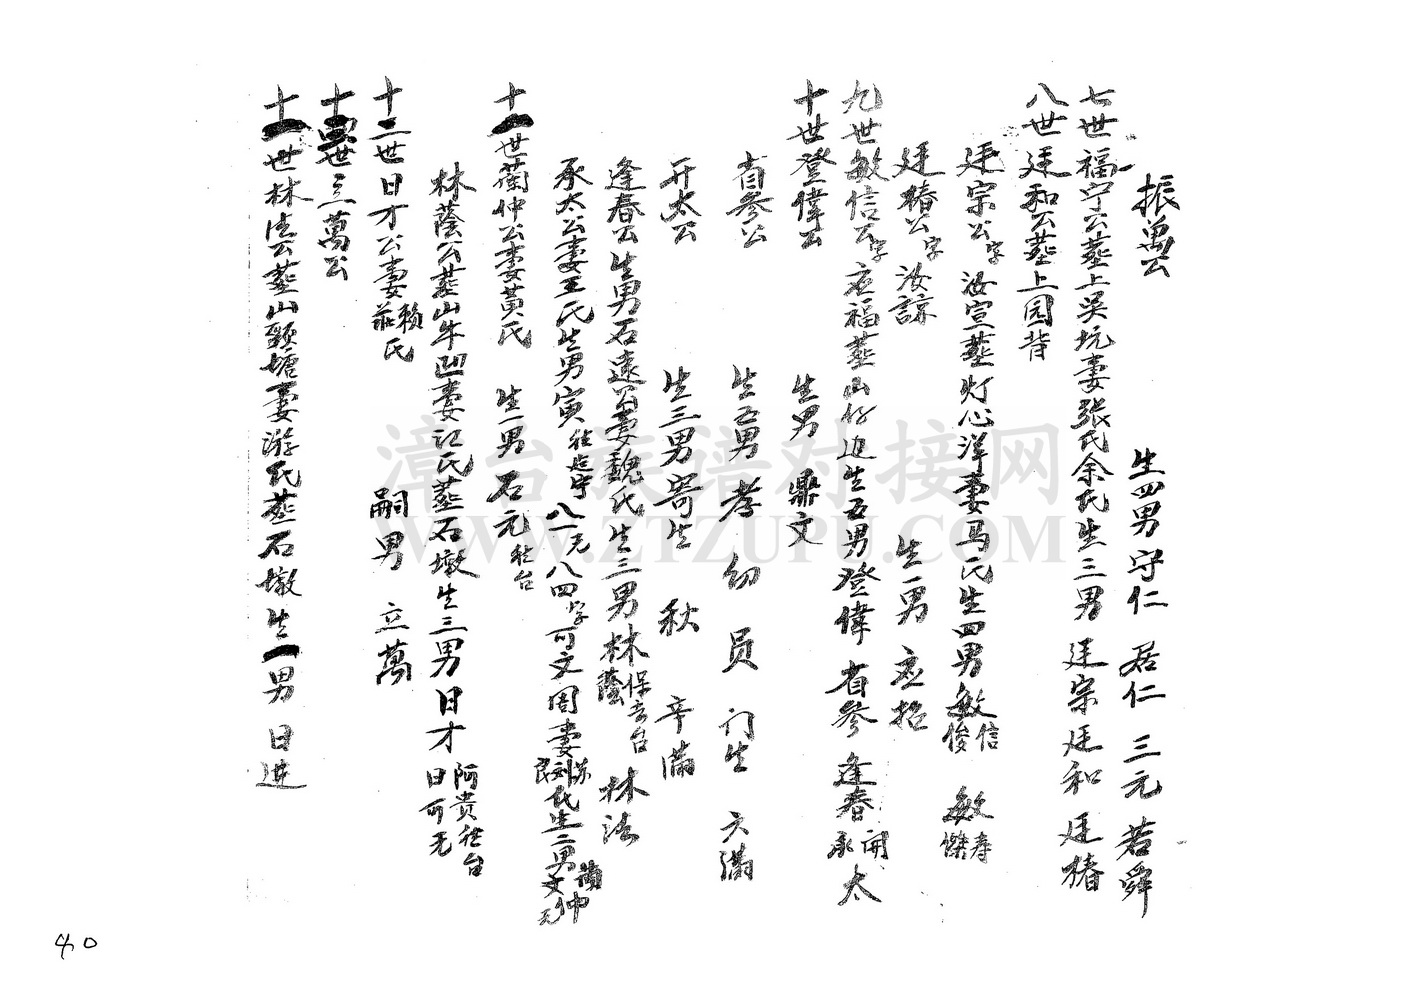 振萬公 生四男守仁 居仁 三元 若舜
七世福宁公塟上吴坑妻張氏余氏生三男 廷宗廷和 廷椿
八世廷和公塟上园背
廷宗公字汝宣塟灯心洋妻马氏生四男敏信敏俊 敏寿敏傑
廷椿公字汝諒 生一男 应招
九世敏信公字应福塟山仔边生五男登偉 省参 逢春 開太 承太
十世登偉公 生男 鼎文
省参公 生五男 孝 幼 员 门生 六滿
开太公 生三男寄生 秋 辛滿
逢春公生男石遠公妻魏氏生三男林蔭 保去台 林法
承太公妻王氏生男寅 八一元八四字可文周妻蘇劉氏生二男蘭仲文元
十一世蘭仲公妻黄氏 生一男石元往台
林蔭公塟山牛凹妻江氏塟石墩生三男日才 阿贵往台 日可无
十二世日才公妻賴莊氏 嗣男 立萬
十三世立萬公
十一世林法公塟山頭塘妻游氏塟石墩生一男 日進
漳台族谱对接网
WWW.ZTZUPU.COM
40